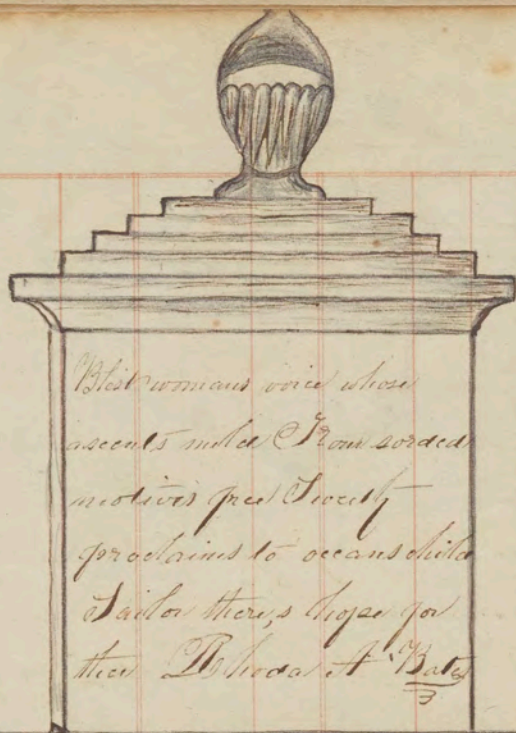 Blest womans voice whose
ascents mild From sorded
motives free Sweetly
proclaims to oceans child
Sailor there,s hope for
thee Rhoda A Bates